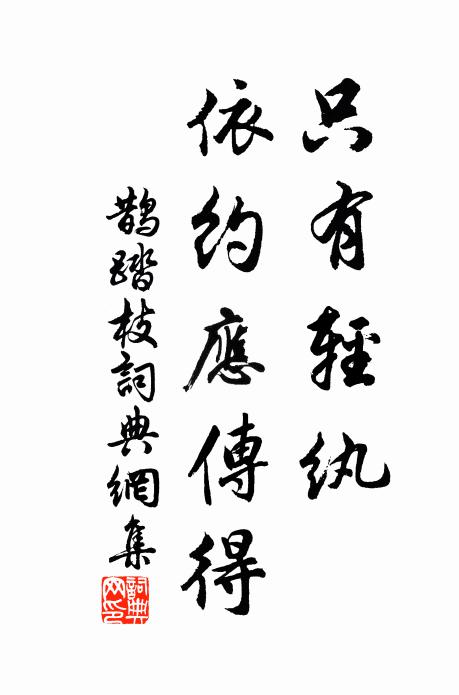 只有輕紈
依約應傳得
鵲踏枝詞典網集
詞典網印